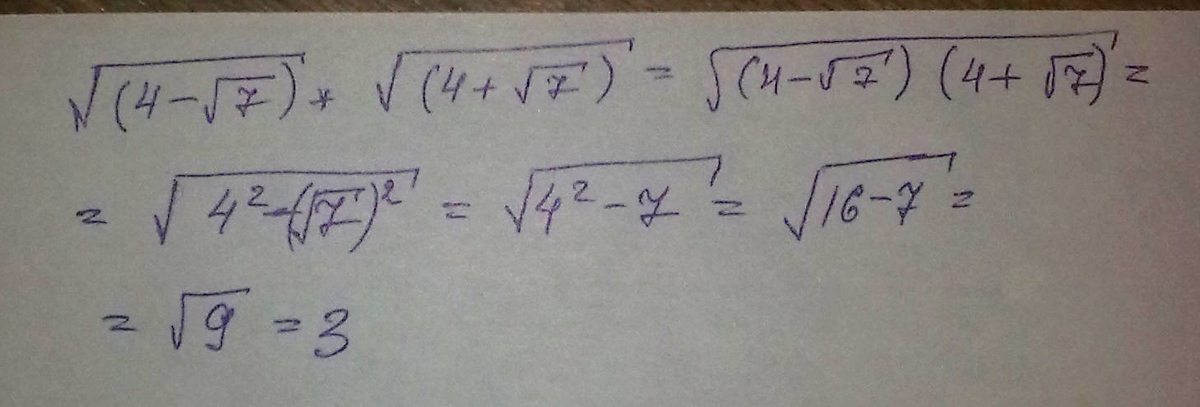 √(4-√7) * √(4+√7) = √(4-√7)(4+√7) =
= √4²-(√7)² = √4²-7 = √16-7 =
= √9 = 3